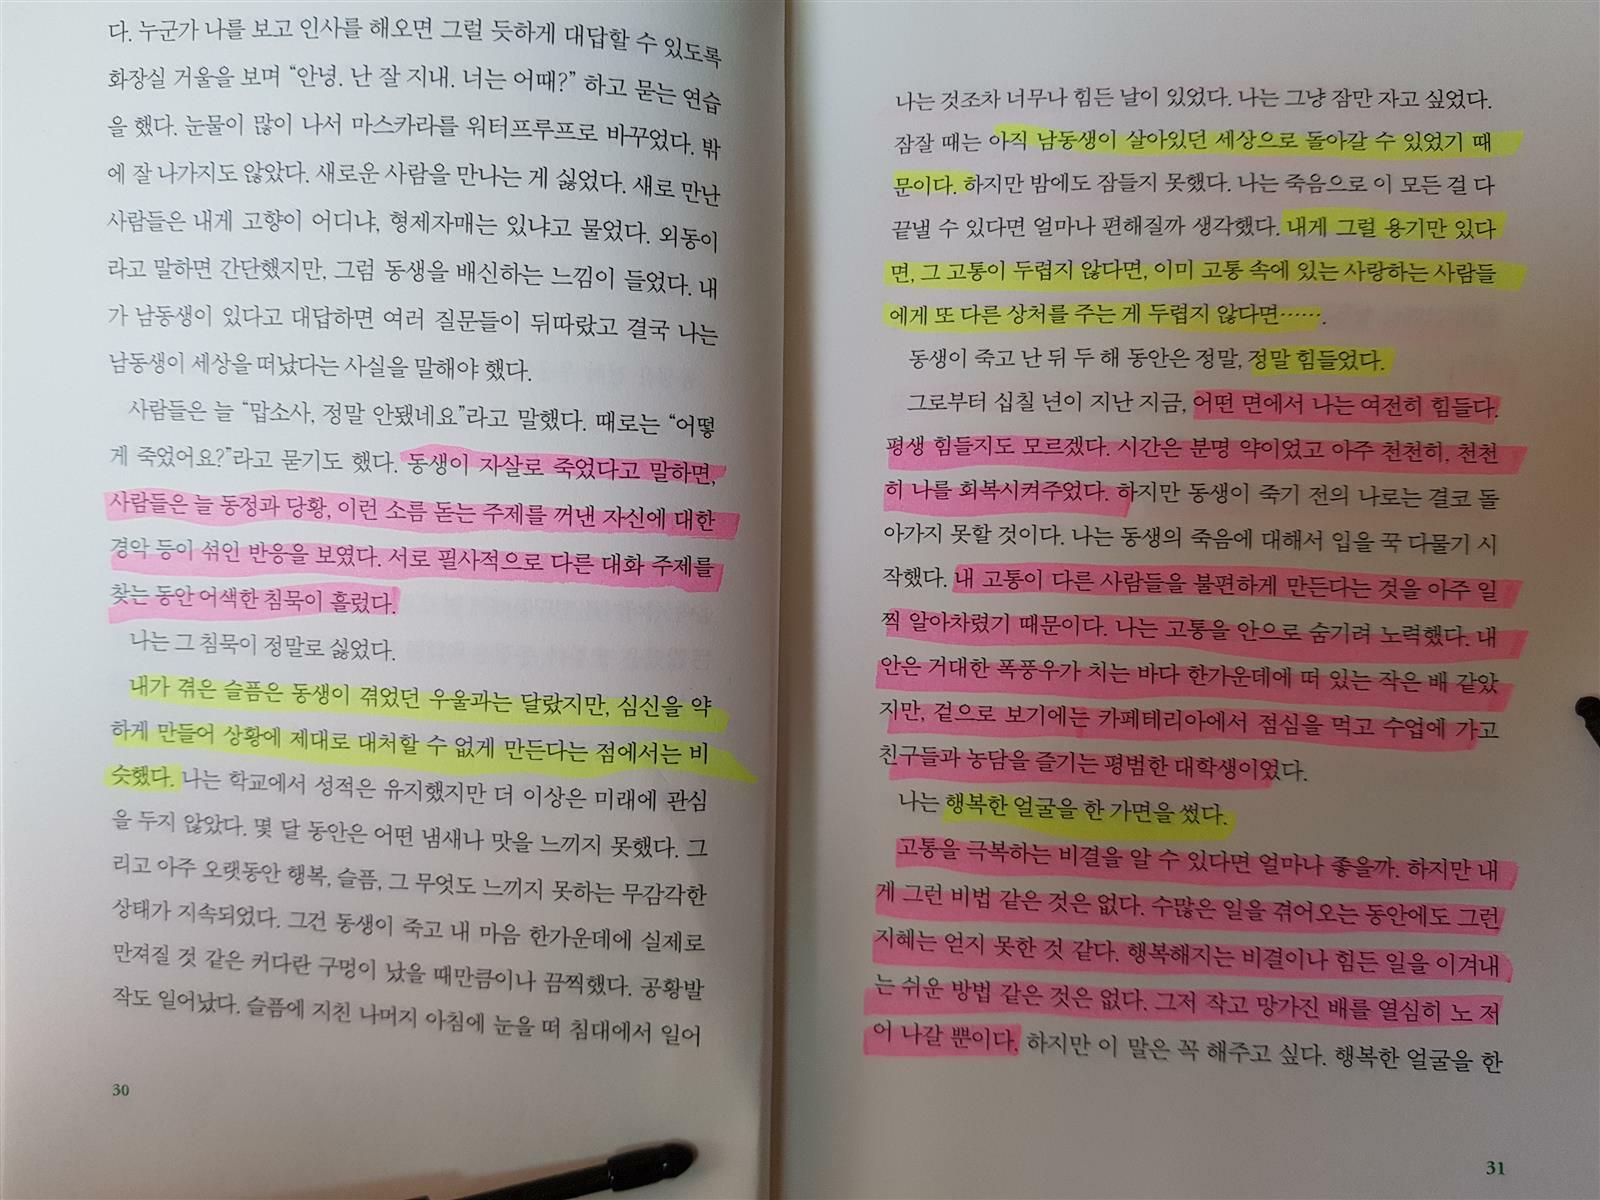 다. 누군가 나를 보고 인사를 해오면 그럴 듯하게 대답할 수 있도록
화장실 거울을 보며 “안녕. 난 잘 지내. 너는 어때?” 하고 묻는 연습
을 했다. 눈물이 많이 나서 마스카라를 워터프루프로 바꾸었다. 밖
에 잘 나가지도 않았다. 새로운 사람을 만나는 게 싫었다. 새로 만난
사람들은 내게 고향이 어디냐, 형제자매는 있냐고 물었다. 외동이
라고 말하면 간단했지만, 그럼 동생을 배신하는 느낌이 들었다. 내
가 남동생이 있다고 대답하면 여러 질문들이 뒤따랐고 결국 나는
남동생이 세상을 떠났다는 사실을 말해야 했다.
사람들은 늘 “맙소사, 정말 안됐네요”라고 말했다. 때로는 “어떻
게 죽었어요?”라고 묻기도 했다. 동생이 자살로 죽었다고 말하면,
사람들은 늘 동정과 당황, 이런 소름 돋는 주제를 꺼낸 자신에 대한
경악 등이 섞인 반응을 보였다. 서로 필사적으로 다른 대화 주제를
찾는 동안 어색한 침묵이 흘렀다.
나는 그 침묵이 정말로 싫었다.
내가 겪은 슬픔은 동생이 겪었던 우울과는 달랐지만, 심신을 약
하게 만들어 상황에 제대로 대처할 수 없게 만든다는 점에서는 비
슷했다. 나는 학교에서 성적은 유지했지만 더 이상은 미래에 관심
을 두지 않았다. 몇 달 동안은 어떤 냄새나 맛을 느끼지 못했다. 그
리고 아주 오랫동안 행복, 슬픔, 그 무엇도 느끼지 못하는 무감각한
상태가 지속되었다. 그건 동생이 죽고 내 마음 한가운데에 실제로
만져질 것 같은 커다란 구멍이 났을 때만큼이나 끔찍했다. 공황발
작도 일어났다. 슬픔에 지친 나머지 아침에 눈을 떠 침대에서 일어
30
나는 것조차 너무나 힘든 날이 있었다. 나는 그냥 잠만 자고 싶었다.
잠잘 때는 아직 남동생이 살아있던 세상으로 돌아갈 수 있었기 때
문이다. 하지만 밤에도 잠들지 못했다. 나는 죽음으로 이 모든 걸 다
끝낼 수 있다면 얼마나 편해질까 생각했다. 내게 그럴 용기만 있다
면, 그 고통이 두렵지 않다면, 이미 고통 속에 있는 사랑하는 사람들
에게 또 다른 상처를 주는 게 두렵지 않다면…….
동생이 죽고 난 뒤 두 해 동안은 정말, 정말 힘들었다.
그로부터 십칠 년이 지난 지금, 어떤 면에서 나는 여전히 힘들다.
평생 힘들지도 모르겠다. 시간은 분명 약이었고 아주 천천히, 천천
히 나를 회복시켜주었다. 하지만 동생이 죽기 전의 나로는 결코 돌
아가지 못할 것이다. 나는 동생의 죽음에 대해서 입을 꾹 다물기 시
작했다. 내 고통이 다른 사람들을 불편하게 만든다는 것을 아주 일
찍 알아차렸기 때문이다. 나는 고통을 안으로 숨기려 노력했다. 내
안은 거대한 폭풍우가 치는 바다 한가운데에 떠 있는 작은 배 같았
지만, 겉으로 보기에는 카페테리아에서 점심을 먹고 수업에 가고
친구들과 농담을 즐기는 평범한 대학생이었다.
나는 행복한 얼굴을 한 가면을 썼다.
고통을 극복하는 비결을 알 수 있다면 얼마나 좋을까. 하지만 내
게 그런 비법 같은 것은 없다. 수많은 일을 겪어오는 동안에도 그런
지혜는 얻지 못한 것 같다. 행복해지는 비결이나 힘든 일을 이겨내
는 쉬운 방법 같은 것은 없다. 그저 작고 망가진 배를 열심히 노 저
어 나갈 뿐이다. 하지만 이 말은 꼭 해주고 싶다. 행복한 얼굴을 한
31